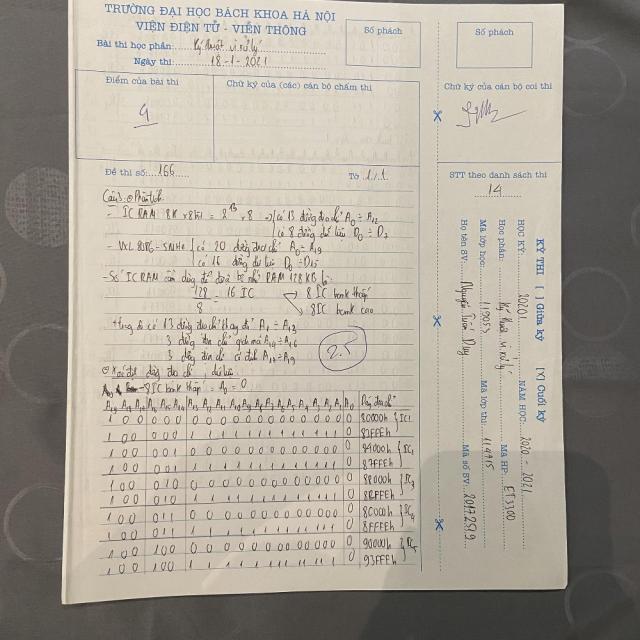 TRƯỜNG ĐẠI HỌC BÁCH KHOA HÀ NỘI
VIỆN ĐIỆN TỬ - VIỄN THÔNG
Bài thi học phần: Kỹ thuật vi xử lý
Ngày thi: 18-1-2021
Số phách
Số phách
Điểm của bài thi
Chữ ký của (các) cán bộ chấm thi
Chữ ký của cán bộ coi thi
9
Đề thi số: 166
Tờ 1/1
STT theo danh sách thi
14
Câu 3: Phân tích
- IC RAM 8K x 8bit = 2^13 x 8 → có 13 đường địa chỉ A0 ÷ A12
có 8 đường dữ liệu D0 ÷ D7
- VXL 8086-5MHz có 20 đường địa chỉ A0 ÷ A19
có 16 đường dữ liệu D0 ÷ D15
- Số IC RAM cần dùng để bộ nhớ RAM 128KB
128/8 = 16 IC
8 IC bank thấp
8 IC bank cao
có 13 đường địa chỉ thay đổi A1 ÷ A13
3 đường địa chỉ giải mã A14 ÷ A16
3 đường địa chỉ cố định A17 ÷ A19
2.5
đường địa chỉ, dữ liệu
8 IC bank thấp: A0 = 0
A19 A18 A17 A16 A15 A14 A13 A12 A11 A10 A9 A8 A7 A6 A5 A4 A3 A2 A1 A0 Dải địa chỉ
1 0 0 0 0 0 0 0 0 0 0 0 0 0 0 0 0 0 0 0 80000h IC1
1 0 0 0 0 0 1 1 1 1 1 1 1 1 1 1 1 1 1 0 83FFEh
1 0 0 0 0 1 0 0 0 0 0 0 0 0 0 0 0 0 0 0 84000h
1 0 0 0 0 1 1 1 1 1 1 1 1 1 1 1 1 1 1 0 87FFEh
1 0 0 0 1 0 0 0 0 0 0 0 0 0 0 0 0 0 0 0 88000h IC3
1 0 0 0 1 0 1 1 1 1 1 1 1 1 1 1 1 1 1 0 8BFFEh
1 0 0 0 1 1 0 0 0 0 0 0 0 0 0 0 0 0 0 0 8C000h IC4
1 0 0 0 1 1 1 1 1 1 1 1 1 1 1 1 1 1 1 0 8FFFEh
1 0 0 1 0 0 0 0 0 0 0 0 0 0 0 0 0 0 0 0 90000h IC5
1 0 0 1 0 0 1 1 1 1 1 1 1 1 1 1 1 1 1 0 93FFEh
KỲ THI [ ] Giữa kỳ [X] Cuối kỳ
HỌC KỲ: 20201 NĂM HỌC: 2020 - 2021
Học phần: Kỹ thuật vi xử lý Mã HP: ET3300
Mã lớp học: Mã lớp thi: 114915
Họ tên SV: Nguyễn Tuấn Duy Mã số SV: